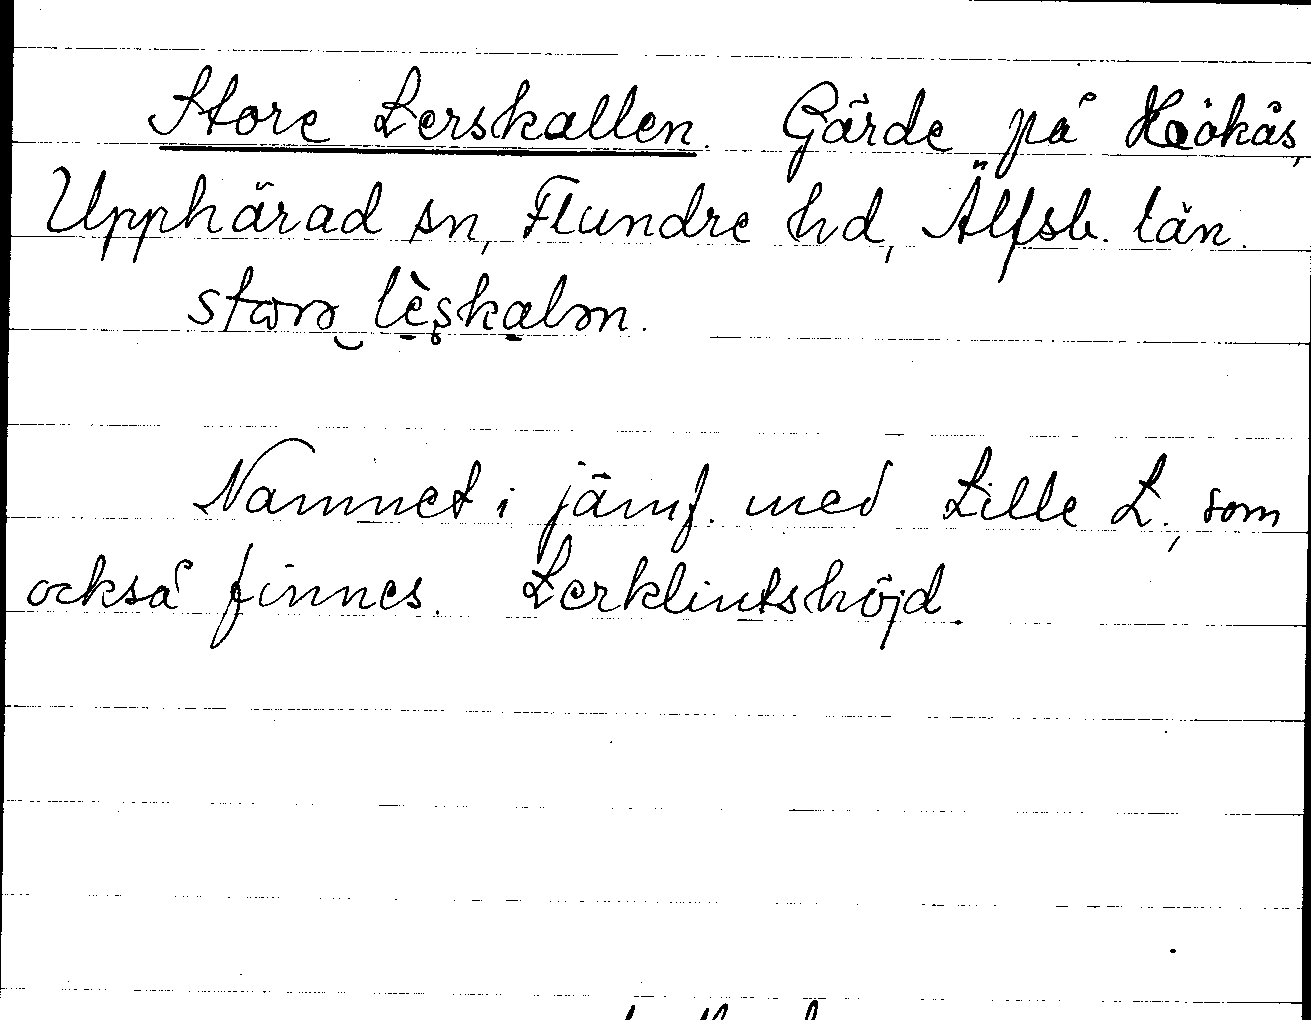 Store Lerskallen. Gärde på Hökås,
Upphärad sn, Flundre hd, Älfsb. län.
Namnet i jämf. med Lille L., som
också finnes. Lerklintshöjd.